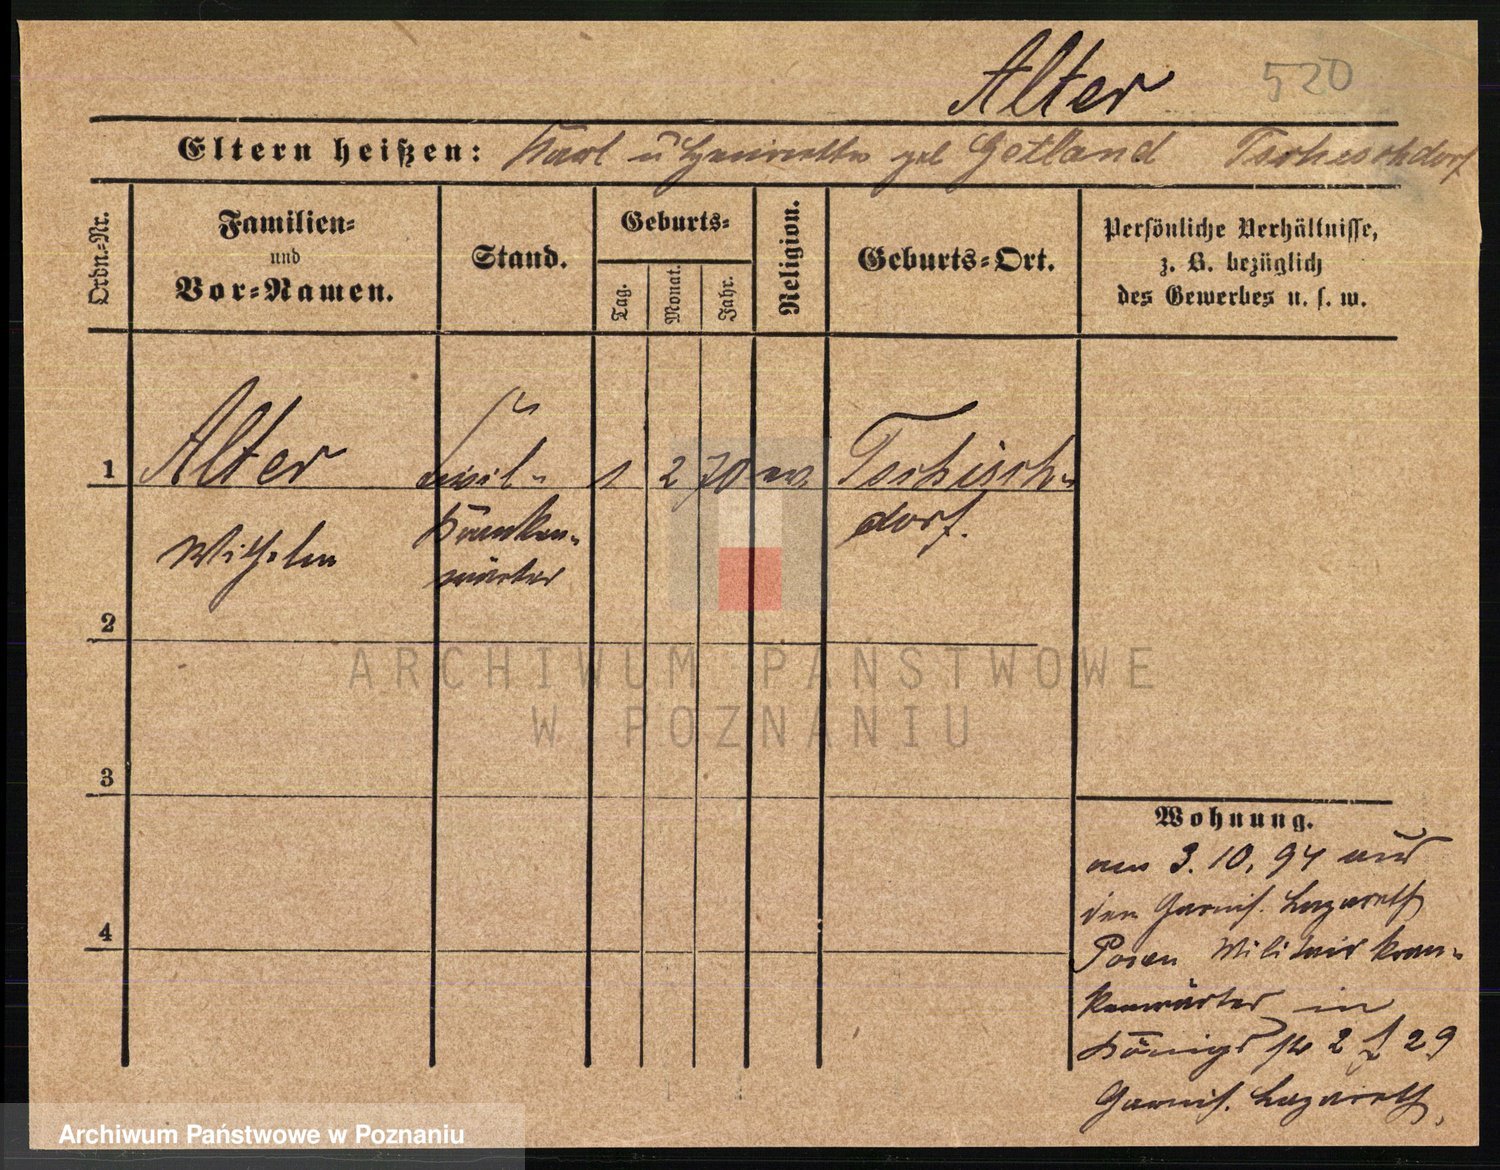 Alter 520
Eltern heißen: Karl u Henriette geb Getland Tschischdorf
Ordn.-Nr.
Familien-
und
Vor-Namen.
Stand.
Geburts-
Tag.
Monat.
Jahr.
Religion.
Geburts-Ort.
Persönliche Verhältnisse,
z. B. bezüglich
des Gewerbes u. s. w.
1 Alter Civil- 1 2 70 ev. Tschisch-
Wilhelm Kranken- dorf.
wärter
2
3
4
Wohnung.
am 3. 10. 94 aus
den Garnis. Lazareth
Posen Militair Kran-
kenwärter in
Königs str 2 f 29
Garnis. Lazareth.
ARCHIWUM PAŃSTWOWE
W POZNANIU
Archiwum Państwowe w Poznaniu